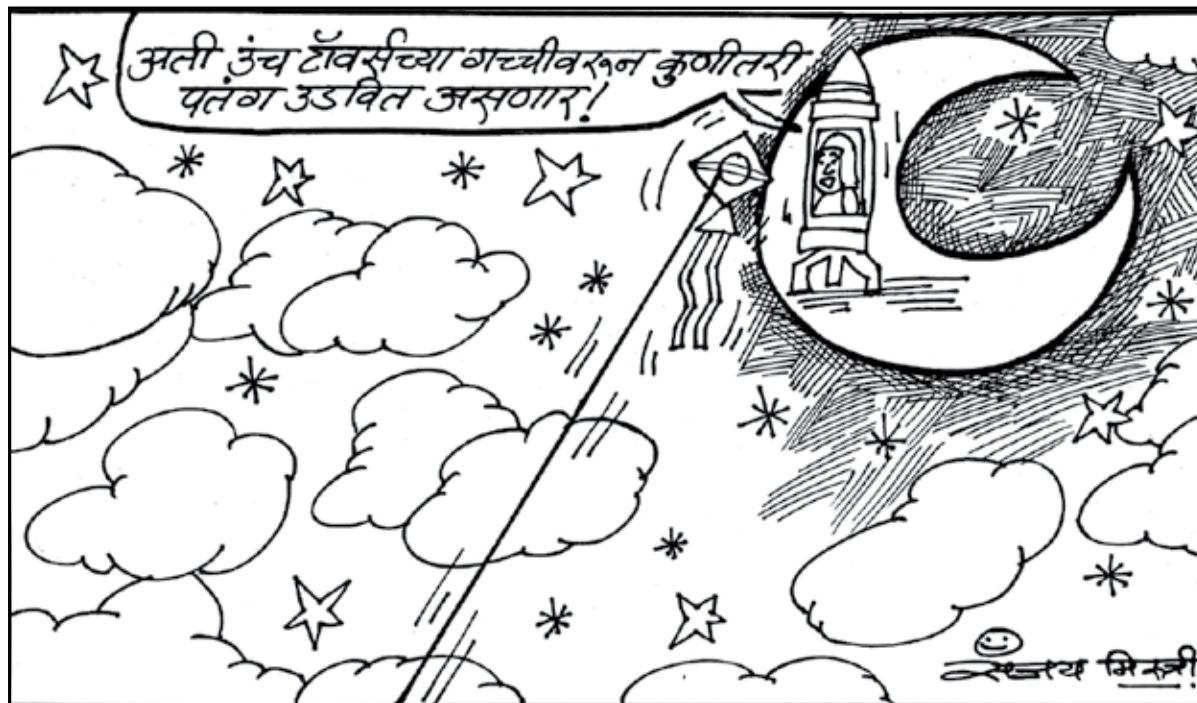 अती उंच टॉवर्सच्या गच्चीवरून कुणीतरी
पतंग उडवित असणार!
संजय मिस्त्री!